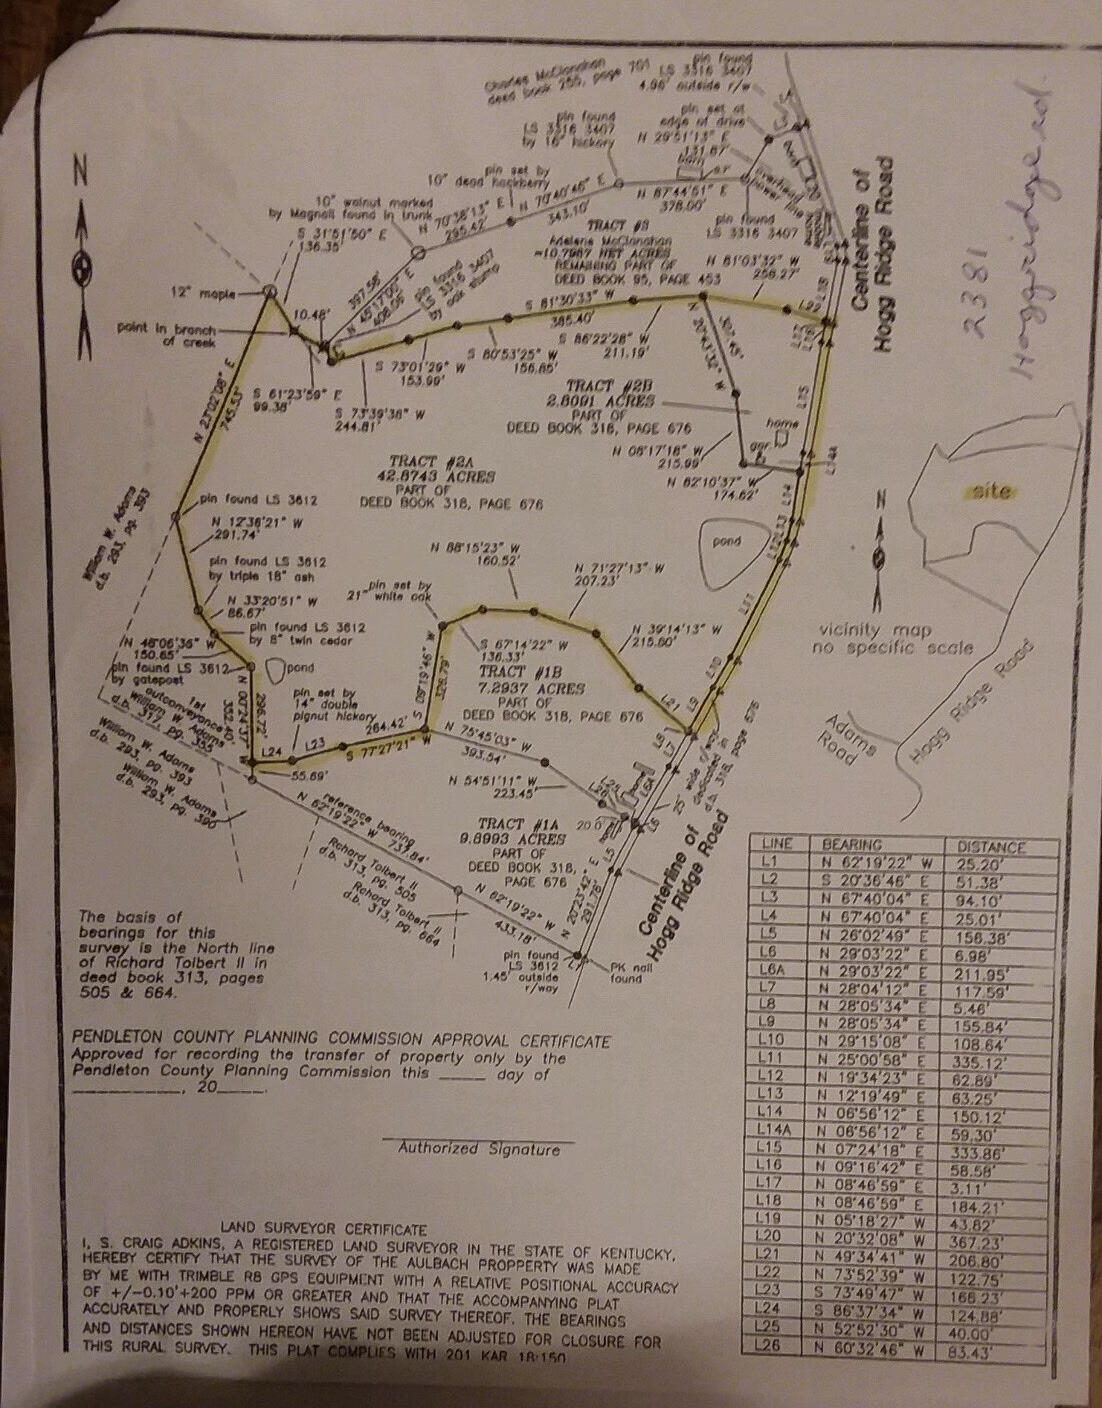 Charles McClanahan
deed book 255, page 701
pin found
LS 3316 3407
4.96' outside r/w
pin found
LS 3316 3407
by 16" hickory
pin set at
edge of drive
N 29°51'13" E
131.87'
barn
overhead
power line
mobile
home
N
pin set by
10" dead hackberry
10" walnut marked
by Magnall found in trunk
N 70°38'13" E
295.42'
N 70°40'45" E
343.10'
N 87°44'51" E
378.00'
pin found
LS 3316 3407
S 31°51'50" E
136.35'
TRACT #3
Adelene McClonahan
~10.7967 NET ACRES
REMAINING PART OF
DEED BOOK 95, PAGE 453
N 81°03'32" W
256.27'
Centerline of
Hogg Ridge Road
2381
Hoggridge rd.
12" maple
397.58'
N 45°17'00" E
408.06'
pin found
LS 3316 3407
by oak stump
10.48'
point in branch
of creek
S 81°30'33" W
385.40'
S 86°22'28" W
211.19'
S 80°53'25" W
156.85'
S 73°01'29" W
153.99'
S 61°23'59" E
99.38'
S 73°39'38" W
244.81'
N 23°02'08" E
745.53'
N 20°43'32" W
307.45'
TRACT #2B
2.8091 ACRES
PART OF
DEED BOOK 318, PAGE 676
home
gar
N 08°17'18" W
215.99'
N 82°10'37" W
174.62'
TRACT #2A
42.8743 ACRES
PART OF
DEED BOOK 318, PAGE 676
L22
L18
L17
L16
L15
L14A
L14
L13
L12
L11
L10
L9
site
N
pond
pin found LS 3612
N 12°36'21" W
291.74'
William W. Adams
d.b. 293, pg. 393
pin found LS 3612
by triple 18" ash
N 33°20'51" W
86.67'
pin found LS 3612
by 8" twin cedar
N 46°06'36" W
150.65'
pin found LS 3612
by gatepost
pond
N 88°15'23" W
160.52'
N 71°27'13" W
207.23'
pin set by
21" white oak
S 67°14'22" W
136.33'
N 39°14'13" W
215.80'
S 09°19'46" W
326.79'
TRACT #1B
7.2937 ACRES
PART OF
DEED BOOK 318, PAGE 676
L21
vicinity map
no specific scale
Adams
Road
Hogg Ridge Road
1st
outconveyance
William W. Adams
d.b. 317, pg. 355
William W. Adams
d.b. 293, pg. 393
William W. Adams
d.b. 293, pg. 390
N 00°24'37" W
352.40'
296.72'
pin set by
14" double
pignut hickory
L24
L23
264.42'
S 77°27'21" W
55.69'
N 75°45'03" W
393.54'
N 54°51'11" W
223.45'
L8
L7
L6A
L6
L5
home
25' wide r/way
dedicated in
d.b. 318, page 676
20.0'
reference bearing
N 62°19'22" W 737.84'
Richard Tolbert II
d.b. 313, pg. 505
Richard Tolbert II
d.b. 313, pg. 664
TRACT #1A
9.8993 ACRES
PART OF
DEED BOOK 318,
PAGE 676
N 20°23'42" E
291.76'
Centerline of
Hogg Ridge Road
N 62°19'22" W
433.18'
pin found
LS 3612
1.45' outside
r/way
L1
PK nail
found
The basis of
bearings for this
survey is the North line
of Richard Tolbert II in
deed book 313, pages
505 & 664.
PENDLETON COUNTY PLANNING COMMISSION APPROVAL CERTIFICATE
Approved for recording the transfer of property only by the
Pendleton County Planning Commission this _____ day of
____________, 20_____.
Authorized Signature
LAND SURVEYOR CERTIFICATE
I, S. CRAIG ADKINS, A REGISTERED LAND SURVEYOR IN THE STATE OF KENTUCKY,
HEREBY CERTIFY THAT THE SURVEY OF THE AULBACH PROPPERTY WAS MADE
BY ME WITH TRIMBLE R8 GPS EQUIPMENT WITH A RELATIVE POSITIONAL ACCURACY
OF +/-0.10'+200 PPM OR GREATER AND THAT THE ACCOMPANYING PLAT
ACCURATELY AND PROPERLY SHOWS SAID SURVEY THEREOF. THE BEARINGS
AND DISTANCES SHOWN HEREON HAVE NOT BEEN ADJUSTED FOR CLOSURE FOR
THIS RURAL SURVEY. THIS PLAT COMPLIES WITH 201 KAR 18:150
LINE BEARING DISTANCE
L1 N 62°19'22" W 25.20'
L2 S 20°36'46" E 51.38'
L3 N 67°40'04" E 94.10'
L4 N 67°40'04" E 25.01'
L5 N 26°02'49" E 156.38'
L6 N 29°03'22" E 6.98'
L6A N 29°03'22" E 211.95'
L7 N 28°04'12" E 117.59'
L8 N 28°05'34" E 5.46'
L9 N 28°05'34" E 155.84'
L10 N 29°15'08" E 108.64'
L11 N 25°00'58" E 335.12'
L12 N 19°34'23" E 62.89'
L13 N 12°19'49" E 63.25'
L14 N 06°56'12" E 150.12'
L14A N 06°56'12" E 59.30'
L15 N 07°24'18" E 333.86'
L16 N 09°16'42" E 58.58'
L17 N 08°46'59" E 3.11'
L18 N 08°46'59" E 184.21'
L19 N 05°18'27" W 43.82'
L20 N 20°32'08" W 367.23'
L21 N 49°34'41" W 206.80'
L22 N 73°52'39" W 122.75'
L23 S 73°49'47" W 166.23'
L24 S 86°37'34" W 124.88'
L25 N 52°52'30" W 40.00'
L26 N 60°32'46" W 83.43'